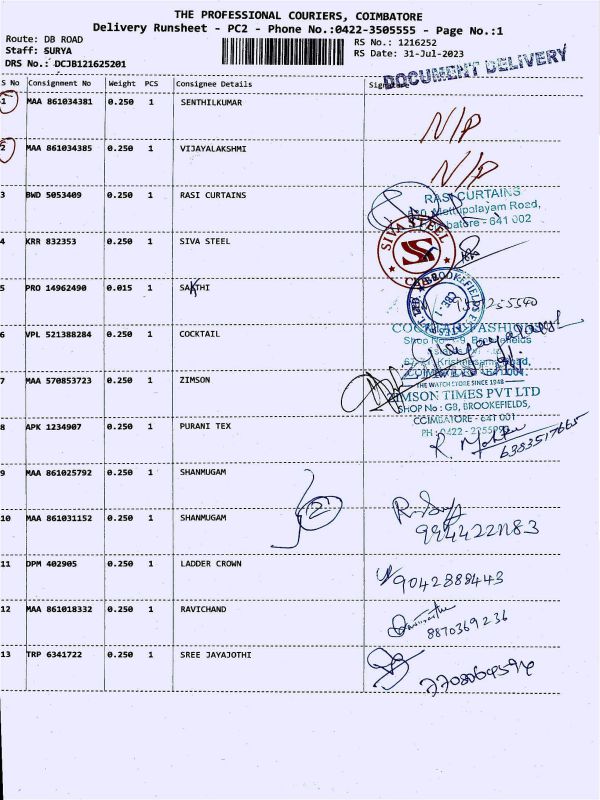 THE PROFESSIONAL COURIERS, COIMBATORE
Delivery Runsheet - PC2 - Phone No.:0422-3505555 - Page No.:1
Route: DB ROAD
RS No.: 1216252
Staff: SURYA
RS Date: 31-Jul-2023
DRS No.: DCJB121625201
DOCUMENT DELIVERY
S No Consignment No Weight PCS Consignee Details Signature
1 MAA 861034381 0.250 1 SENTHILKUMAR
N/P
2 MAA 861034385 0.250 1 VIJAYALAKSHMI
N/P
3 BWD 5053409 0.250 1 RASI CURTAINS
RASI CURTAINS
Mettupalayam Road,
641 002
4 KRR 832353 0.250 1 SIVA STEEL
SIVA STEEL
5 PRO 14962490 0.015 1 SAKTHI
BROOKEFIELDS
6 VPL 521388284 0.250 1 COCKTAIL
7 MAA 570853723 0.250 1 ZIMSON
THE WATCH STORE SINCE 1948
ZIMSON TIMES PVT LTD
SHOP No : GB, BROOKEFIELDS,
COIMBATORE - 641 001
PH : 0422 -
8 APK 1234907 0.250 1 PURANI TEX
6383517665
9 MAA 861025792 0.250 1 SHANMUGAM
10 MAA 861031152 0.250 1 SHANMUGAM
2
11 DPM 402905 0.250 1 LADDER CROWN
9042888443
12 MAA 861018332 0.250 1 RAVICHAND
8870369236
13 TRP 6341722 0.250 1 SREE JAYAJOTHI